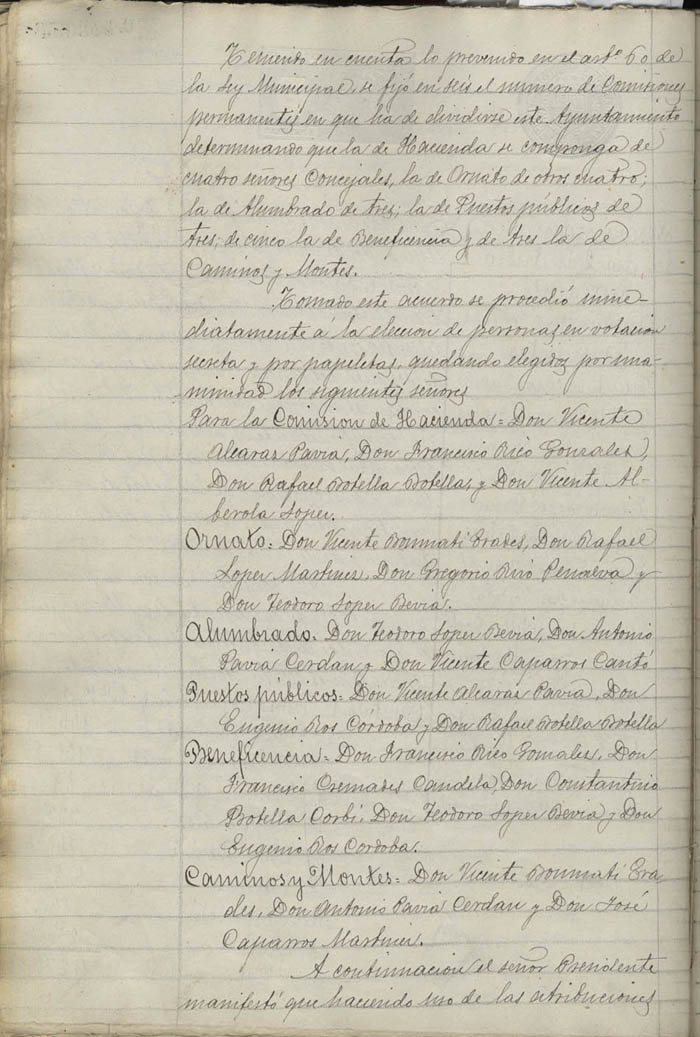 Teniendo en cuenta lo prevenido en el artº 60 de
la Ley Municipal, se fijó en seis el numero de Comisiones
permanentes en que ha de dividirse este Ayuntamiento
determinando que la de Hacienda se componga de
cuatro señores Concejales, la de Ornato de otros cuatro;
la de Alumbrado de tres; la de Puestos públicos de
tres; de cinco la de Beneficencia y de tres la de
Caminos y Montes.
Tomado este acuerdo se procedió inme-
diatamente a la eleccion de personas en votacion
secreta y por papeletas, quedando elegidos por una-
nimidad los siguientes señores
Para la Comision de Hacienda = Don Vicente
Alcaraz Pavia, Don Francisco Rico Gonzales,
Don Rafael Botella Botella, y Don Vicente Al-
berola Soper.
Ornato = Don Vicente Boumati Erades, Don Rafael
Soper Martinez, Don Gregorio Riró Penalva y
Don Teodoro Soper Bevia.
Alumbrado = Don Teodoro Soper Bevia, Don Antonio
Pavia Cerdan y Don Vicente Caparros Cantó
Puestos públicos = Don Vicente Alcaraz Pavia, Don
Eugenio Ros Córdoba y Don Rafael Botella Botella
Beneficencia = Don Francisco Rico Gonzales, Don
Francisco Cremades Candela, Don Constantino
Botella Corbi, Don Teodoro Soper Bevia y Don
Eugenio Ros Cordoba.
Caminos y Montes = Don Vicente Boumati Era-
des, Don Antonio Pavia Cerdan y Don José
Caparros Martinez.
A continuacion el señor Presidente
manifestó que haciendo uso de las atribuciones